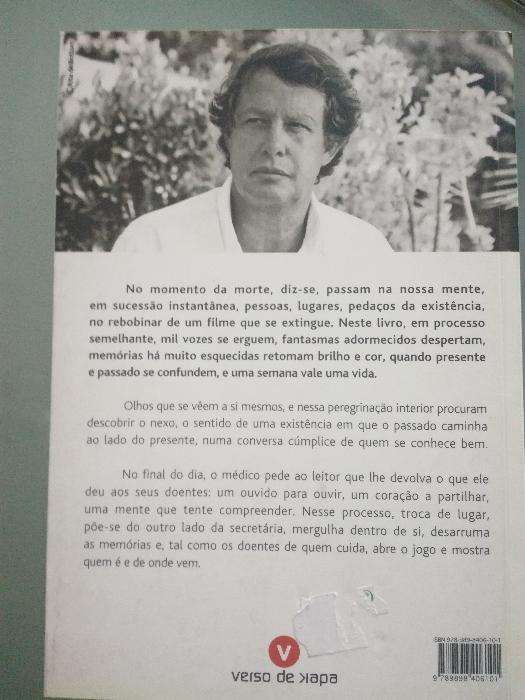 No momento da morte, diz-se, passam na nossa mente,
em sucessão instantânea, pessoas, lugares, pedaços da existência,
no rebobinar de um filme que se extingue. Neste livro, em processo
semelhante, mil vozes se erguem, fantasmas adormecidos despertam,
memórias há muito esquecidas retomam brilho e cor, quando presente
e passado se confundem, e uma semana vale uma vida.
Olhos que se vêem a si mesmos, e nessa peregrinação interior procuram
descobrir o nexo, o sentido de uma existência em que o passado caminha
ao lado do presente, numa conversa cúmplice de quem se conhece bem.
No final do dia, o médico pede ao leitor que lhe devolva o que ele
deu aos seus doentes: um ouvido para ouvir, um coração a partilhar,
uma mente que tente compreender. Nesse processo, troca de lugar,
põe-se do outro lado da secretária, mergulha dentro de si, desarruma
as memórias e, tal como os doentes de quem cuida, abre o jogo e mostra
quem é e de onde vem.
V
verso de kapa
9 789898 406101